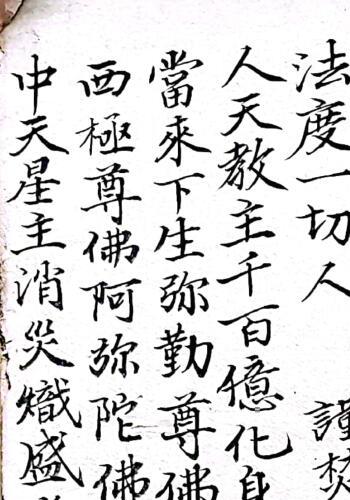 法度一切人　謹焚
人天教主千百億化身
當來下生弥勤尊佛
西極尊佛阿弥陀佛
中天星主消災熾盛